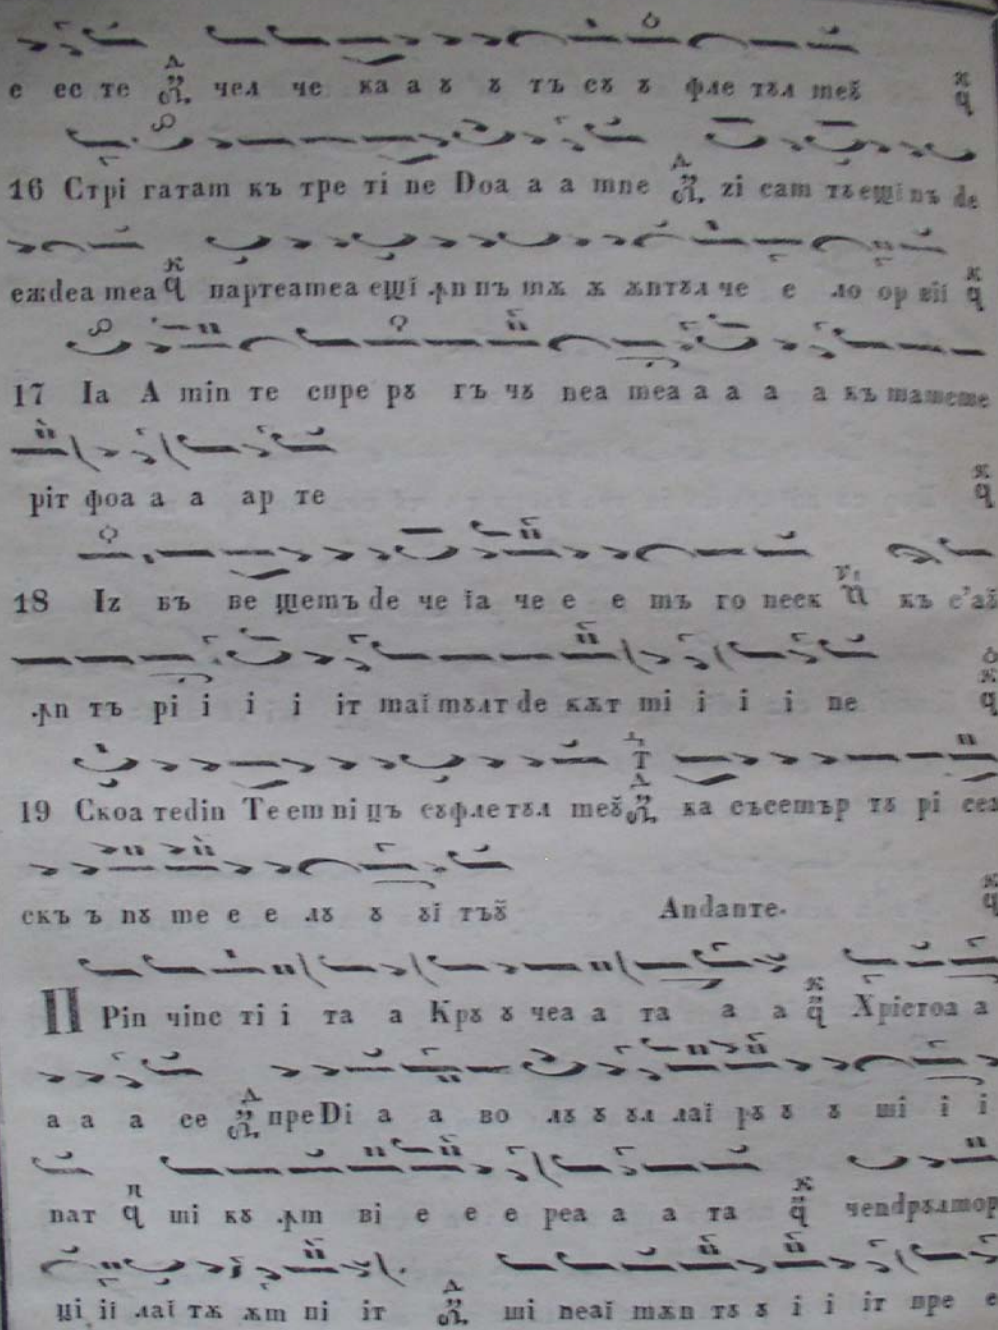 е ее те чел че ка а ꙋ ꙋ тъ сꙋ ꙋ фле тꙋл меꙋ̆
16 Стрі гатам къ тре ті пе Doa а а мне zi сам тъ ещі пъ de
еждеа меа партеатеа ещі ꙟп пъ мѫ ѫ ѫптꙋл че е ло ор вїї
17 Іа А min те спре рꙋ гъ чꙋ пеа меа а а а а къ мамеме
ріт фоа а а ар те
18 Iz бъ ве щемъ de че їа че е е мъ го неск къ е'аꙋ̆
ꙟп тъ рі і і і іт маї мꙋлт de кѫт мі і і і не
19 Скоа тedin Те ем ні цъ сꙋфле тꙋл меꙋ̆ ка съсемър тꙋ рі сеа
скъ ъ nꙋ ме е е лꙋ ꙋ ꙋі тъꙋ̆ Andante.
ПРin чіпе ті і та а Крꙋ ꙋ чеа а та а а Хрістоа а
а а а се преDi а а во лꙋ ꙋ ꙋл лаї рꙋ ꙋ ꙋ ші і і
пат ші кꙋ ꙟm ві е е е реа а а та
ці її лаї тѫ ѫm пі іт ші пеаї мѫп тꙋ ꙋ і і іт пре е